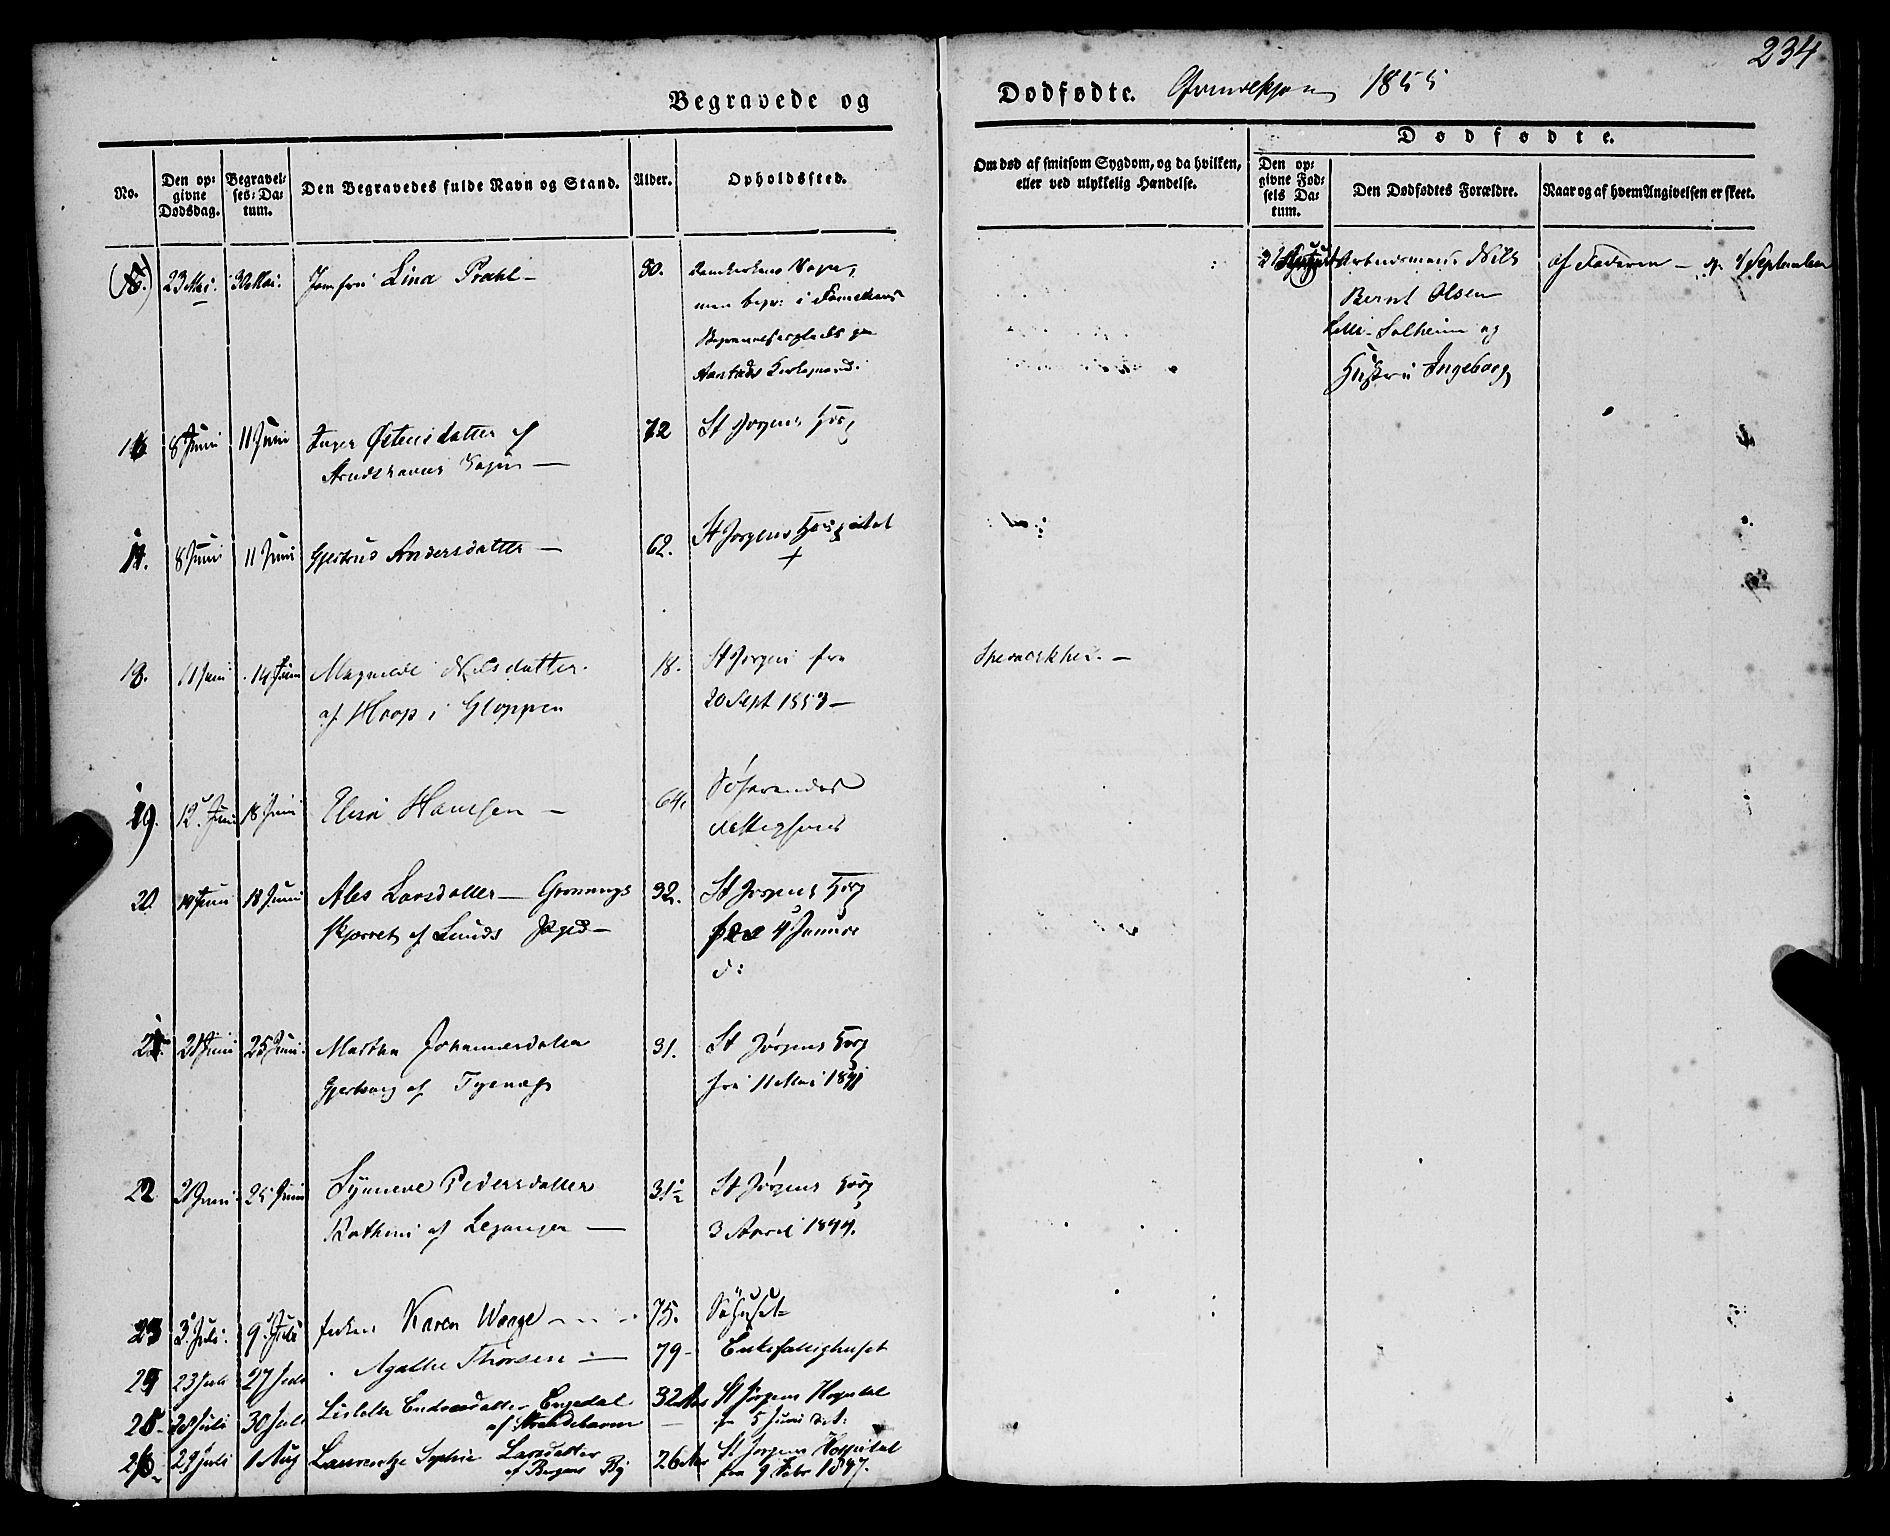 234
Begravede og Dødfødte. Qvindekjøn 1855
No.
Den opgivne Dødsdag.
Begravelses-Datum.
Den Begravedes fulde Navn og Stand.
Alder.
Opholdssted.
Om død af smitsom Sygdom, og da hvilken, eller ved ulykkelig Hændelse.
Dødfødte.
Den opgivne Fødsels Datum.
Den Dødfødtes Forældre.
Naar og af hvem Angivelsen er skeet.
23 Mai. 30 Mai. Jomfru Lina Prahl — 50. Domkirkens Sogn,
men begr: i Familiens
Begravelsesplads paa
Aarstads Kirkegaard.
21 August Arbeidsmand Nils
Bernt Olsen
Lille-Solheim og
Hustru Ingeborg
af Faderen — 1 September
16 8 Juni 11 Juni Inger Østensdatter af 72 St Jørgens Hosp
Sogn —
17. 8 Juni 11 Juni Gjertrud Andersdatter — 62. St Jørgens Hospital
+
18. 11 Juni 14 Juni Magnilde Nilsdatter 18. St Jørgens fra
af Hoop i Gloppen 20 Sept 1853 —
Spedalskhed. —
19. 12 Juni 18 Juni Elisa Hansen — 64. Søfarendes
Fattighuus
20. 14 Juni 18 Juni Ales Larsdatter — Grønnings 32. St Jørgens Hosp
skjærret af Lunds Præstegd — fra 4 Januar
d:
21. 21 Juni 25 Juni. Martha Johannesdatter 31. St Jørgens Hosp
Gjertvaag af Tysnæs fra 11 Mai 1841
22 21 Juni 25 Juni Synneve Pedersdatter 31½ St Jørgens Hosp
af Leganger — 3 April 1844.
23 3 Juli. 9 Juli Enken Karen Waage — 75. Søhuset
24 23 Juli 27 Juli Agathe Thorsen — 79 — Enkefattighuset
25 28 Juli 30 Juli Lislette Endresdatter Engedal 32 Aar St Jørgens Hospital
af Strandebarm fra 5 Juni d.A:
26 29 Juli 1 Aug Laurentze Sophie Larsdatter 26 Aar St Jørgens Hospital
af Bergens By fra 9 Febr 1847.